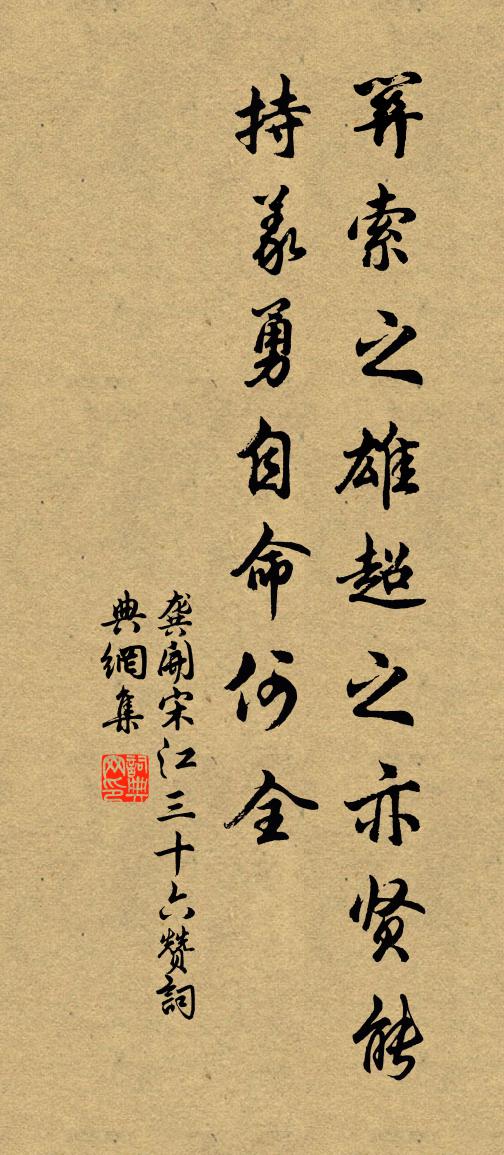 关索之雄超之亦贤能
持義勇自命何全
龚開宋江三十六赞詞
典網集
詞典
网印